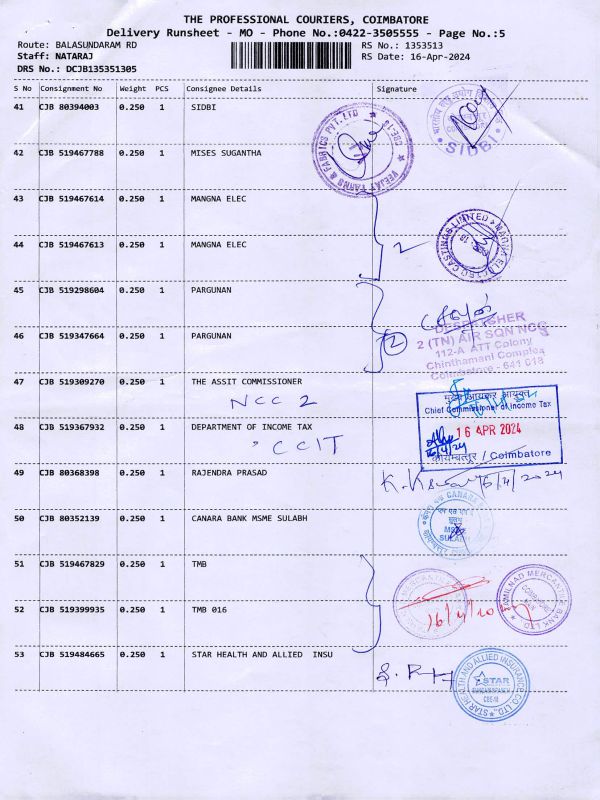 THE PROFESSIONAL COURIERS, COIMBATORE
Delivery Runsheet - MO - Phone No.:0422-3505555 - Page No.:5
Route: BALASUNDARAM RD RS No.: 1353513
Staff: NATARAJ RS Date: 16-Apr-2024
DRS No.: DCJB135351305
S No Consignment No Weight PCS Consignee Details Signature
41 CJB 80394003 0.250 1 SIDBI
SIDBI
42 CJB 519467788 0.250 1 MISES SUGANTHA
VEEJAY YARNS & FABRICS PVT. LTD ★ CBE-18 ★
43 CJB 519467614 0.250 1 MANGNA ELEC
44 CJB 519467613 0.250 1 MANGNA ELEC
2
45 CJB 519298604 0.250 1 PARGUNAN
46 CJB 519347664 0.250 1 PARGUNAN
2
DESPATCHER
2 (TN) AIR SQN NCC
112-A ATT Colony
Chinthamani Complex
Coimbatore - 641 018
47 CJB 519309270 0.250 1 THE ASSIT COMMISSIONER
NCC 2
मुख्य आयकर आयुक्त
Chief Commissioner of Income Tax
48 CJB 519367932 0.250 1 DEPARTMENT OF INCOME TAX
CCIT
16 APR 2024
16/4/24
कोयम्बत्तूर / Coimbatore
49 CJB 80368398 1 0.250 RAJENDRA PRASAD
16/4/2024
50 CJB 80352139 0.250 1 CANARA BANK MSME SULABH
CANARA
MSME
SULABH
51 CJB 519467829 0.250 1 TMB
52 CJB 519399935 0.250 1 TMB 016
TAMILNAD MERCANTILE BANK LTD
16/4/20
53 CJB 519484665 0.250 1 STAR HEALTH AND ALLIED INSU
STAR HEALTH AND ALLIED INSURANCE CO. LTD.
STAR